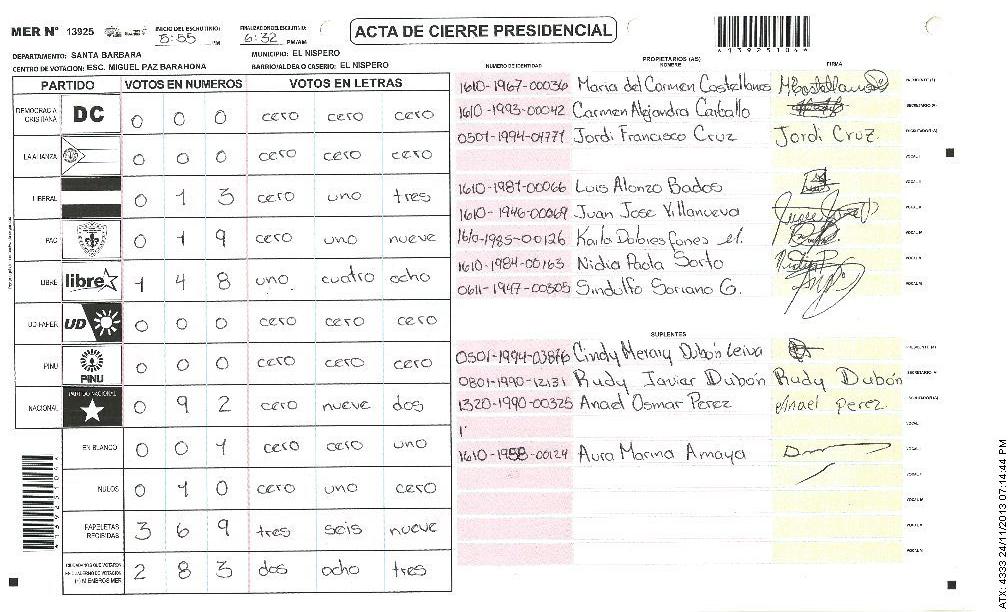 MER Nº 13925
INICIO DEL ESCRUTINIO: 5:55 PM
FINALIZACION DEL ESCRUTINIO: 6:32 PM/AM
ACTA DE CIERRE PRESIDENCIAL
DEPARTAMENTO: SANTA BARBARA
MUNICIPIO: EL NISPERO
CENTRO DE VOTACION: ESC. MIGUEL PAZ BARAHONA
BARRIO/ALDEA O CASERIO: EL NISPERO
PARTIDO VOTOS EN NUMEROS VOTOS EN LETRAS
DEMOCRACIA CRISTIANA DC 0 0 0 cero cero cero
LA ALIANZA 0 0 0 cero cero cero
LIBERAL 0 1 3 cero uno tres
PAC 0 1 9 cero uno nueve
LIBRE libre 1 4 8 uno cuatro ocho
UD FAPER UD 0 0 0 cero cero cero
PINU PINU 0 0 0 cero cero cero
NACIONAL PARTIDO NACIONAL 0 9 2 cero nueve dos
EN BLANCO 0 0 1 cero cero uno
NULOS 0 1 0 cero uno cero
PAPELETAS RECIBIDAS 3 6 9 tres seis nueve
CIUDADANOS QUE VOTARON 2 8 3 dos ocho tres
(+) MIEMBROS MER
NUMERO DE IDENTIDAD
PROPIETARIOS (AS)
NOMBRE
FIRMA
1610-1967-00036 Maria del Carmen Castellanos
1610-1993-00042 Carmen Alejandra Carballo
0501-1994-01771 Jordi Francisco Cruz Jordi Cruz.
1610-1987-00066 Luis Alonzo Bados
1610-1946-00069 Juan Jose Villanueva
1610-1985-00126 Karla Dolores
1610-1984-00163 Nidia Paola Sorto
0611-1947-00305 Sindulfo Soriano G.
SUPLENTES
0501-1994-03876 Cindy Merary Dubón Leiva
0801-1990-12131 Rudy Javier Dubón Rudy Dubón
1320-1990-00325 Anael Osmar Perez Anael perez.
1610-1958-00124 Aura Marina Amaya
ATX: 4333 24/11/2013 07:14:44 PM